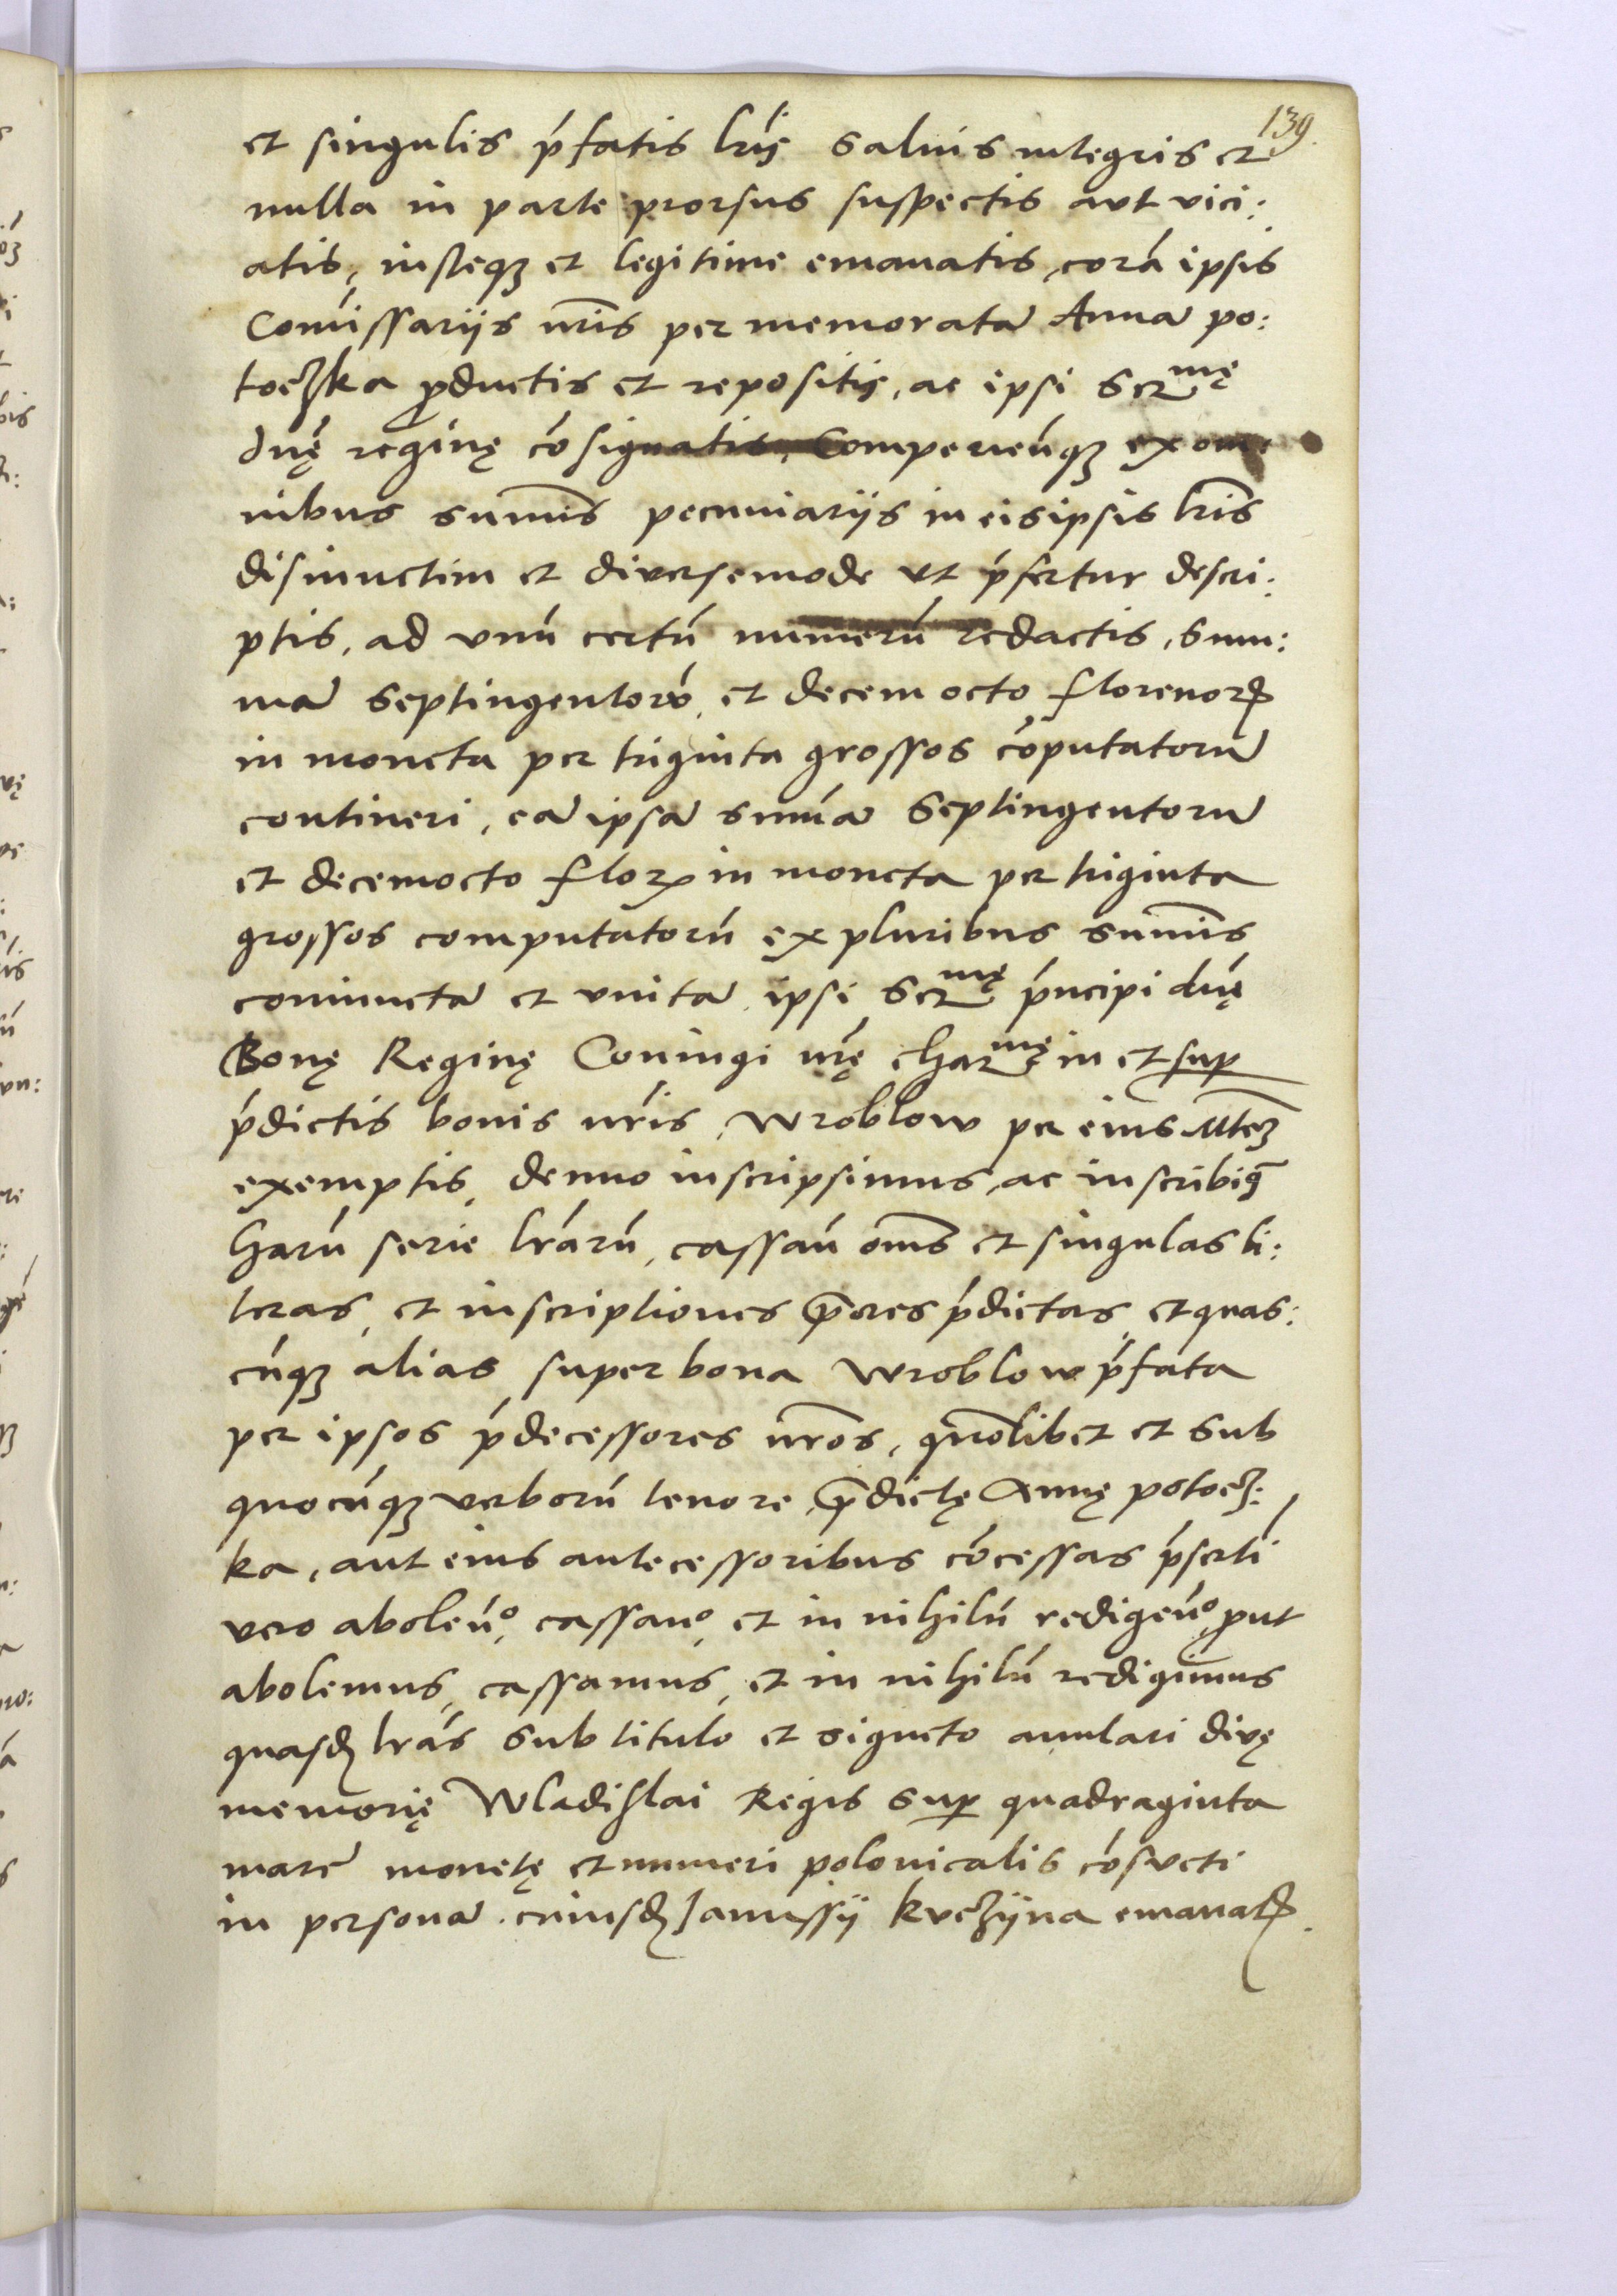 139.
et singulis p̄fatis lr̄ijs saluis integris et
nulla in parte prorsus suspectis aut vici:
atis, insteqꝫ et legitime emanatis, corā ipsis
Com̄issariijs nr̄is per memoratā Annā po:
toczka ꝓductis et repositis, ac ipsi Serᵐᵉ̨
dn̄ę reginę cōsignatis. Comperieūqꝫ ex om:
nibus sum̄is pecuniarijs in eisipsis lr̄is
disiunctim et diversemode vt p̄fertur descri:
ptis, ad vnū certū numerū redactis, sum:
mā septingentorū et decem octo florenorꝝ
in moneta per triginta grossos cōputatorū
contineri, eā ipsā sum̄ā septingentorū
et decemocto florꝝ in moneta per triginta
grossos computatorū ex pluribus sum̄is
coniunctā et vnitā ipsi Serᵐᵉ̨ p̄ncipi dn̄ę
Bonę Reginę Coniugi nr̄ę charᵐᵉ̨ in et suꝑ
p̄dictis bonis nr̄is wroblow per eius Mtēꝫ
exemptis, denuo inscripsimus, ac inscribiꝰ
harū serie lr̄arū, cassaū om̄s et singulas li:
teras, et inscriptiones p̄ores p̄dictas, et quas:
cūqꝫ alias super bona wroblow p̄fata
per ipsos p̄decessores nr̄os, quōlibet et sub
quocūqꝫ verborū tenore, p̄dictę Annę potocz:
ka, aut eius antecessoribus cōcessas p̄serti
vero aboleūº, cassanº, et in nihilū redigeūº, ꝓut
abolemus, cassamus, et in nihilū redigimus
quasdꝫ lr̄as sub titulo et signeto annulari divę
memorię Wladislai Regis suꝑ quadraginta
marc̄ monetę et numeri polonicalis cōsveti
in personā cuiusdꝫ Janussij kvczijna emanatꝝ.